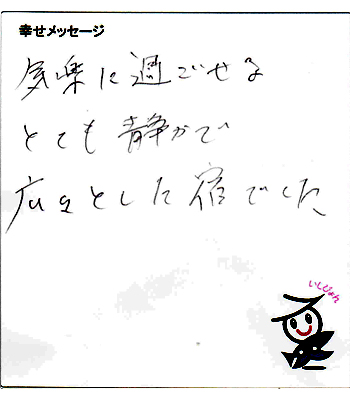 幸せメッセージ
気楽に過ごせる
とても静かで
広々とした宿でした
いしぴょん